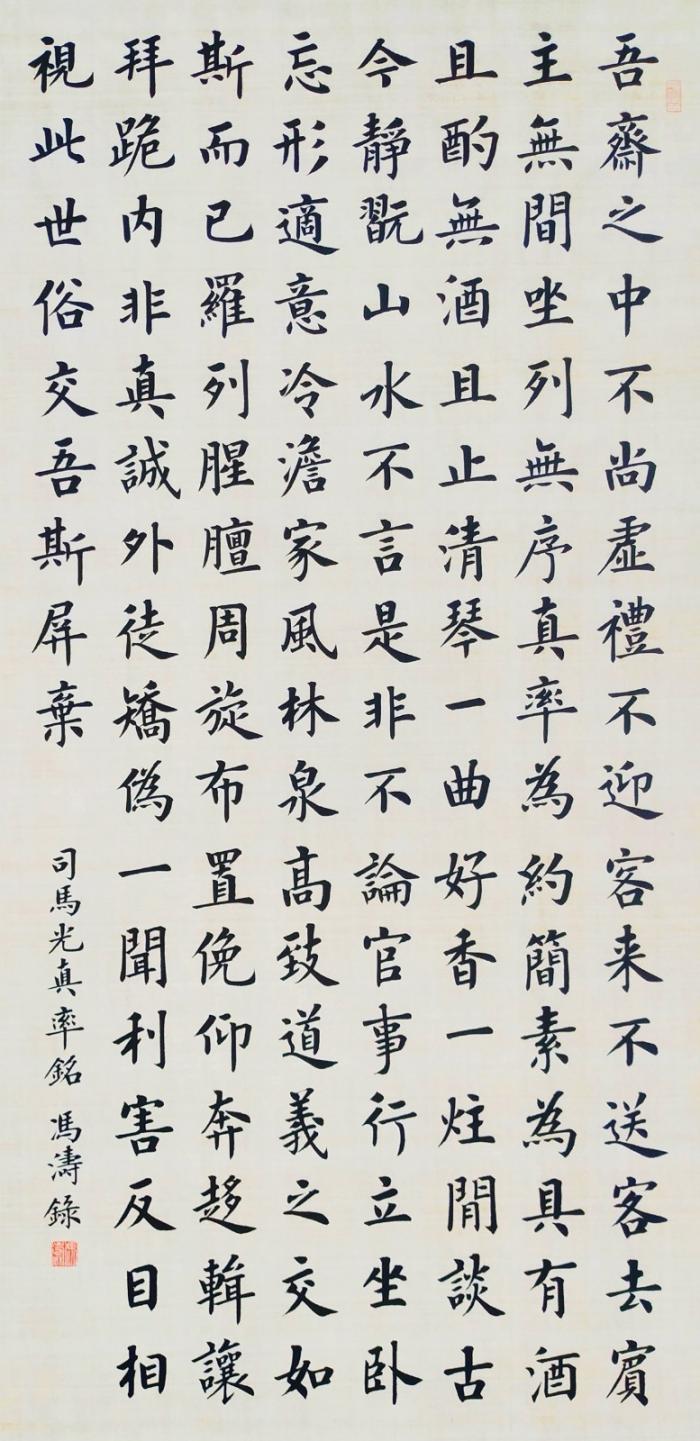 吾齋之中不尚虛禮不迎客来不送客去賓
主無間坐列無序真率為約簡素為具有酒
且酌無酒且止清琴一曲好香一炷閒談古
今靜翫山水不言是非不論官事行立坐臥
忘形適意冷澹家風林泉高致道義之交如
斯而已羅列腥膻周旋布置俛仰奔趍輯讓
拜跪内非真誠外徒矯偽一聞利害反目相
視此世俗交吾斯屏棄
司馬光真率銘 馮濤錄